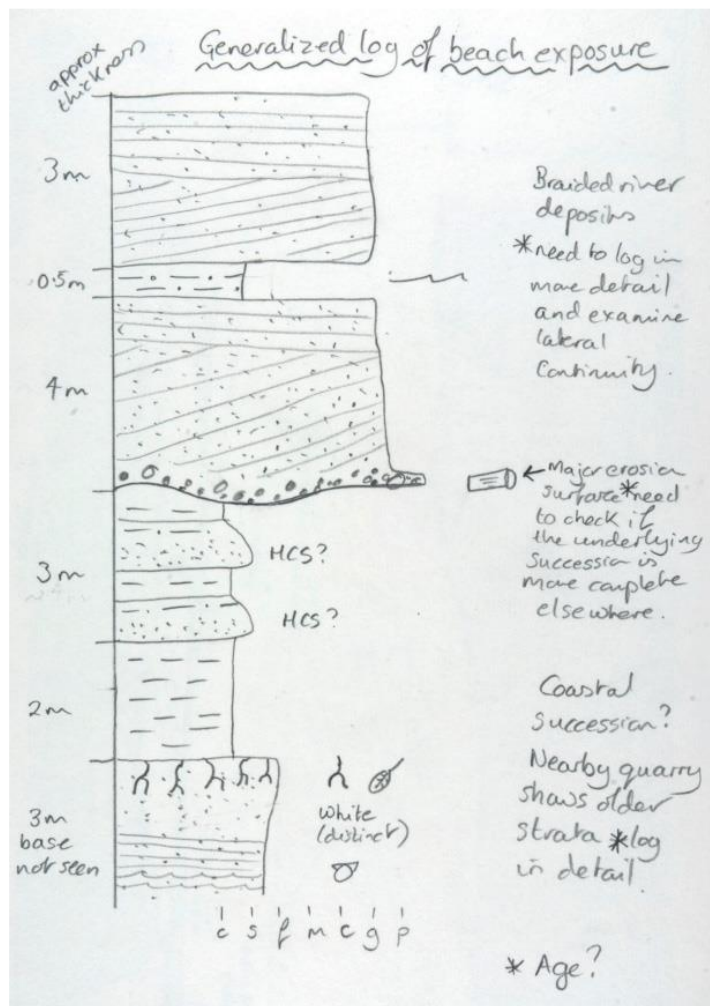 Generalized log of beach exposure
approx
thickness
3m
Braided river
deposits
*need to log in
more detail
and examine
lateral
continuity.
0.5m
4m
← Major erosion
surface *need
to check if
the underlying
succession is
more complete
elsewhere.
3m
HCS?
HCS?
2m
Coastal
succession?
Nearby quarry
shows older
strata *log
in detail.
3m
base
not seen
white
(distinct)
c s f m c g p
* Age?